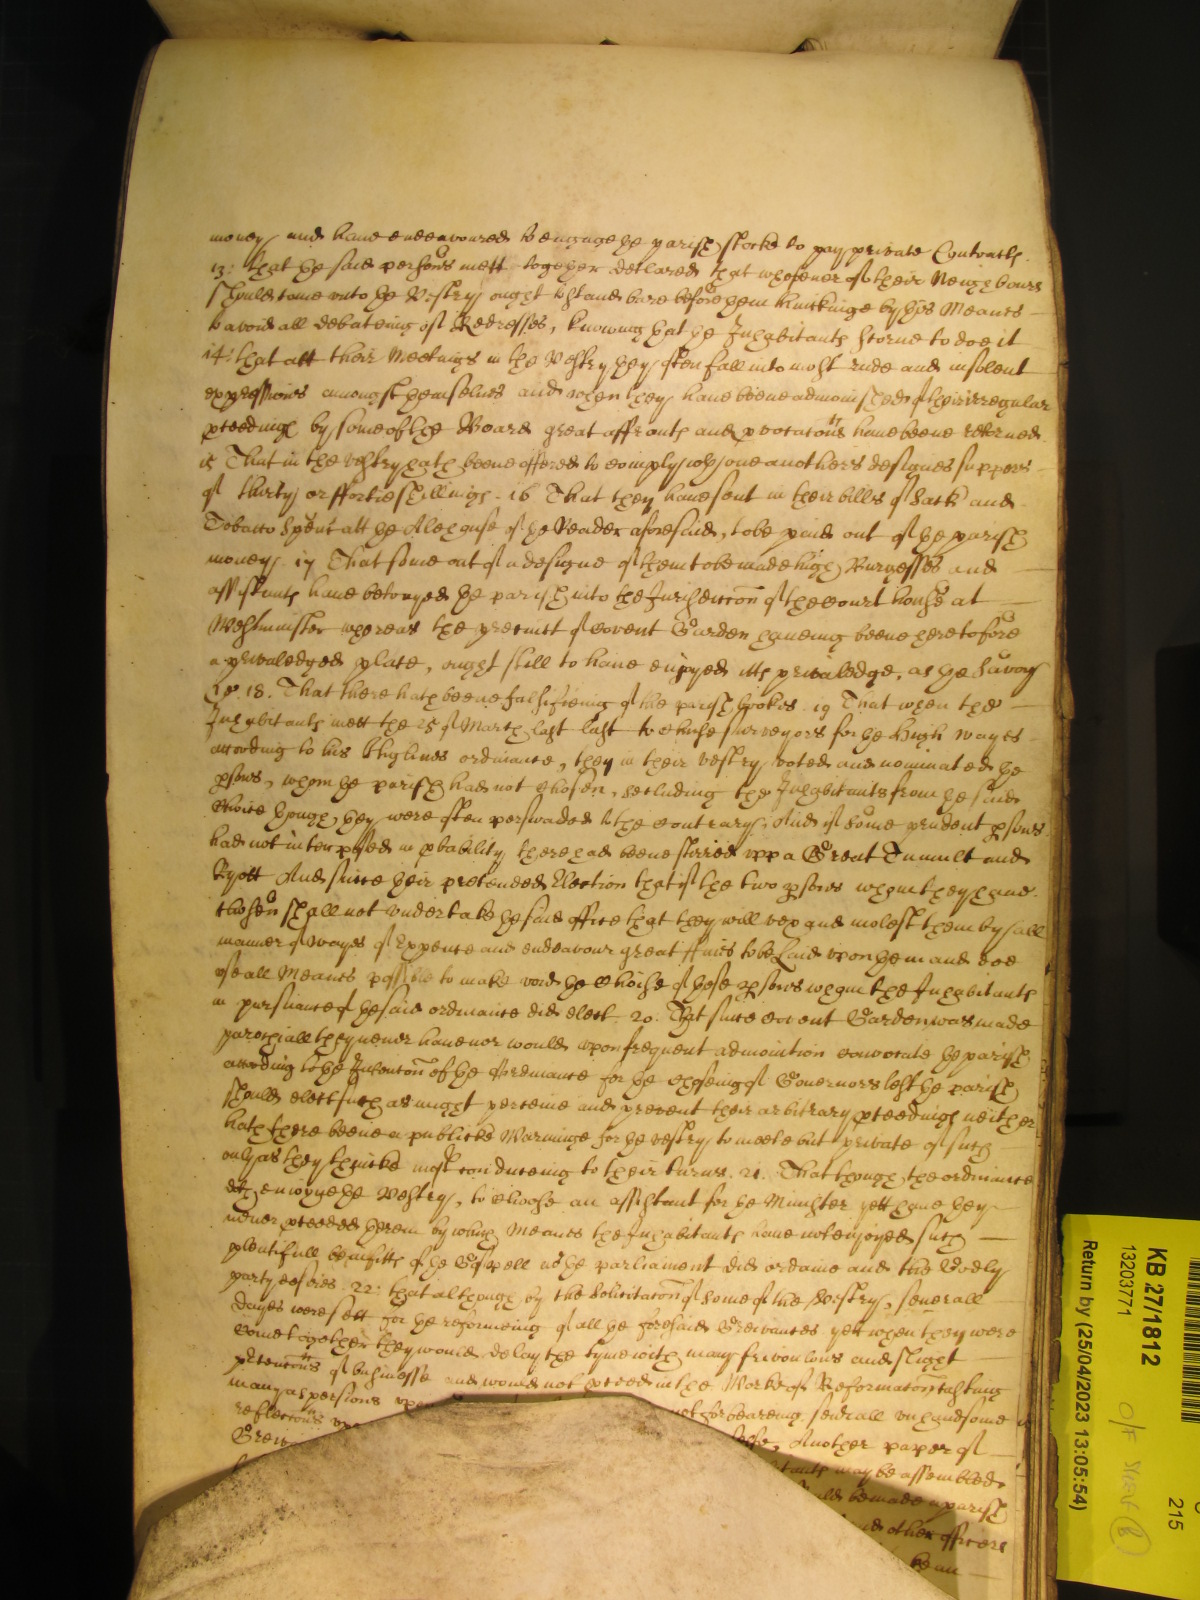 money and have endeavoured to engage the parish stocke to pay private Contracts.
13: that the said persons mett together declared that whosoever of their Neighbours
should come into the Vestry ought to stand bare before them thinkinge by this Meanes
to avoid all debateing of Redresses, knowing that the Inhabitants scorne to doe it
14: that att their Meetings in the Vestry they often fall into most rude and insolent
expressions amongst themselves and when they have beene admonished of their irregular
proceedings by some of the Board great affronts and provocations have beene returned.
15 That in the vestry hath beene offered to comply with one anothers designes suppers
of thirty or ffortie shillings. 16 That they have sent in their bills of Sack and
Tobacco spent att the Alehouse of the Reader aforesaid, to be paid out of the parish
money. 17 That some out of a designe of them to be made high Burgesses and
assistants have betrayed the parish into the Jurisdiccon of the Court house at
Westminster whereas the precinct of Covent Garden haveing beene heretofore
a priviledged place, ought still to have enjoyed its priviledge, as the Savoy
18. That there hath beene falsifieing of the parish bookes. 19 That when the
Inhabitants mett the 25 of March last last to chuse surveyors for the High wayes
according to his Highnes ordinance, they in their vestry voted and nominated the
persons, whom the parish had not chosen, secluding the Inhabitants from the said
choice though they were often perswaded to the contrary, And if some prudent persons
had not interposed in probability there had beene stirred upp a Great Tumult and
Ryott And since their pretended Election that if the two persons whom they have
chosen shall not undertake the said office that they will vex and molest them by all
manner of wayes of Expence and endeavour great ffines to be Laid upon them and doe
use all Meanes possible to make void the choise of those persons whom the Inhabitants
in pursuance of the said ordinance did elect. 20. That since Covent Garden was made
parochiall they never have nor would upon frequent admonition convocate the parish
according to the Intencon of the Ordinance for the choseing of Governors lest the parish
should elect such as might perceive and prevent their arbitrary proceedings neither
hath there beene a publicke Warninge for the vestry to meete but private of such
only as they thinke most conduceing to their turns. 21. That though the ordinance
doth enioyne the Vestry, to choose an assistant for the Minister yett have they
never proceeded therein by which Meanes the Inhabitants have not enjoyed such
plentifull benefitts of the Gospell as the parliament did ordaine and the Godly
party desires. 22: that although by the Solicitacon of some of the Vestry, severall
dayes were sett for the reformeing of all the foresaid Greivances yett when they were
come together they would delay the tyme with many frivoulous and slight
pretencons of businesse and would not proceed in the Worke of Reformacon casting
many aspersions not forbeareing severall unhandsome
reflections Another paper of
may be assembled
be made a parish
other officers
be an
KB 27/1812
13203771
Return by (25/04/2023 13:05:54)
215